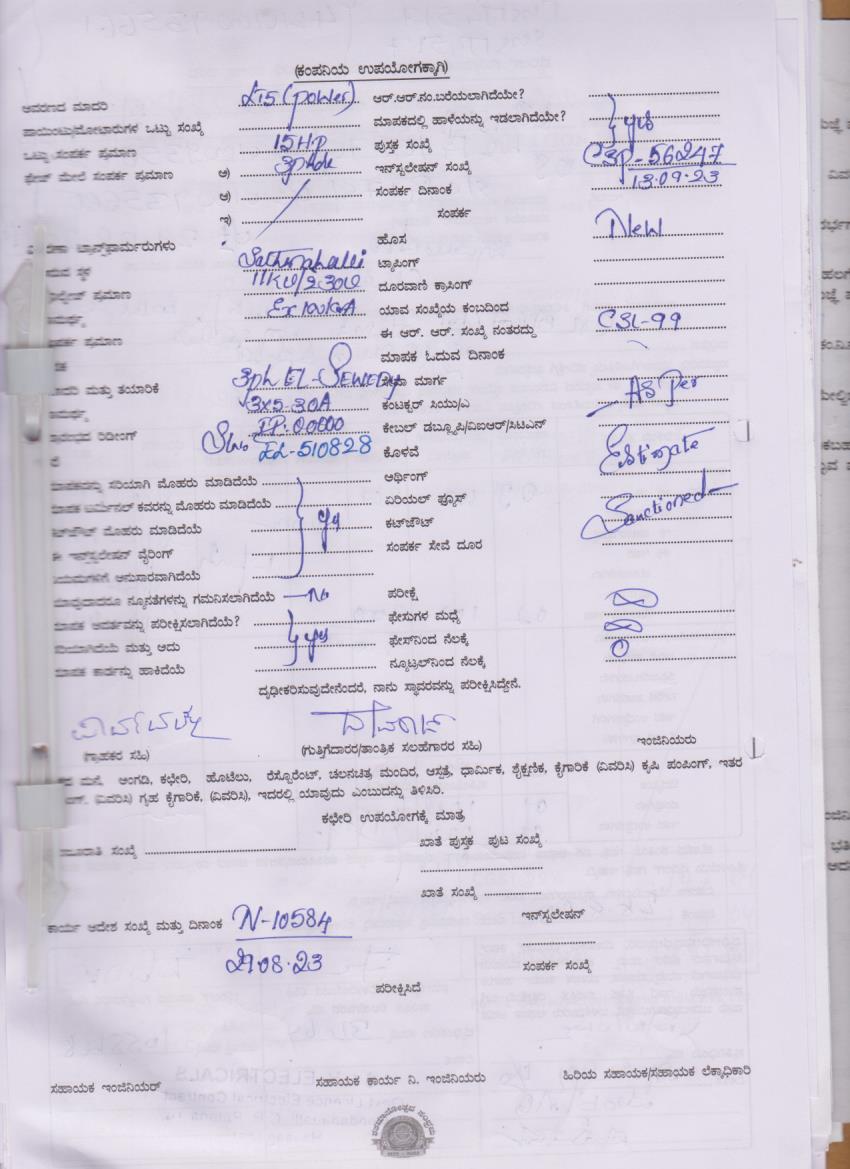 (ಕಂಪನಿಯ ಉಪಯೋಗಕ್ಕಾಗಿ)
ಆವರಣದ ಮಾದರಿ LT5 (power) ಆರ್.ಆರ್.ನಂ.ಬರೆಯಲಾಗಿದೆಯೇ?
ಪಾಯಿಂಟು/ಮೋಟಾರುಗಳ ಒಟ್ಟು ಸಂಖ್ಯೆ ಮಾಪಕದಲ್ಲಿ ಹಾಳೆಯನ್ನು ಇಡಲಾಗಿದೆಯೇ? yes
ಒಟ್ಟು ಸಂಪರ್ಕ ಪ್ರಮಾಣ 15HP ಪುಸ್ತಕ ಸಂಖ್ಯೆ
ಫೇಜ್ ಮೇಲೆ ಸಂಪರ್ಕ ಪ್ರಮಾಣ ಅ) ಇನ್‌ಸ್ಟಲೇಷನ್ ಸಂಖ್ಯೆ CSP-56247
ಆ) ಸಂಪರ್ಕ ದಿನಾಂಕ 13.09.23
ಇ) ಸಂಪರ್ಕ
ಟ್ರಾನ್ಸ್‌ಫಾರ್ಮರುಗಳು ಹೊಸ New
ಸ್ಥಳ ಟ್ಯಾಪಿಂಗ್
ಪ್ರಮಾಣ 11KV/ ದೂರವಾಣಿ ಕ್ರಾಸಿಂಗ್
Ex100KVA ಯಾವ ಸಂಖ್ಯೆಯ ಕಂಬದಿಂದ
ಪ್ರಮಾಣ ಈ ಆರ್. ಆರ್. ಸಂಖ್ಯೆ ನಂತರದ್ದು CSL-99
ಮಾಪಕ ಓದುವ ದಿನಾಂಕ
ಮತ್ತು ತಯಾರಿಕೆ 3ph EL-SEWEDY ಮಾರ್ಗ
3x5.30A ಕಂಟಕ್ಟರ್ ಸಿಯು/ಎ As Per
ರಿಡೀಂಗ್ IR:00000 ಕೇಬಲ್ ಡಬ್ಲ್ಯೂಪಿ/ವಿಐಆರ್/ಸಿಟಿಎನ್
Slno EL-510828 ಕೊಳವೆ Estimate
ಮಾಪಕವನ್ನು ಸರಿಯಾಗಿ ಮೊಹರು ಮಾಡಿದೆಯೆ ಆರ್ಥಿಂಗ್
ಮಾಪಕ ಟರ್ಮಿನಲ್ ಕವರನ್ನು ಮೊಹರು ಮಾಡಿದೆಯೆ ಏರಿಯಲ್ ಫ್ಯೂಸ್ Sanctioned
ಕಟ್‌ಔಟ್ ಮೊಹರು ಮಾಡಿದೆಯೆ yes ಕಟ್‌ಔಟ್
ಈ ಇನ್‌ಸ್ಟಲೇಷನ್ ವೈರಿಂಗ್ ಸಂಪರ್ಕ ಸೇವೆ ದೂರ
ನಿಯಮಗಳಿಗೆ ಅನುಸಾರವಾಗಿದೆಯೆ
ಯಾವುದಾದರೂ ನ್ಯೂನತೆಗಳನ್ನು ಗಮನಿಸಲಾಗಿದೆಯೆ No ಪರೀಕ್ಷೆ
ಮಾಪಕ ಆವರ್ತವನ್ನು ಪರೀಕ್ಷಿಸಲಾಗಿದೆಯೆ? ಫೇಸುಗಳ ಮಧ್ಯೆ
ಸರಿಯಾಗಿದೆಯೆ ಮತ್ತು ಅದು yes ಫೇಸ್‌ನಿಂದ ನೆಲಕ್ಕೆ
ಮಾಪಕ ಕಾರ್ಡನ್ನು ಹಾಕಿದೆಯೆ ನ್ಯೂಟ್ರಲ್‌ನಿಂದ ನೆಲಕ್ಕೆ
ದೃಢೀಕರಿಸುವುದೇನೆಂದರೆ, ನಾನು ಸ್ಥಾವರವನ್ನು ಪರೀಕ್ಷಿಸಿದ್ದೇನೆ.
(ಗ್ರಾಹಕರ ಸಹಿ) (ಗುತ್ತಿಗೆದಾರರ/ತಾಂತ್ರಿಕ ಸಲಹೆಗಾರರ ಸಹಿ) ಇಂಜಿನಿಯರು
ಮನೆ, ಅಂಗಡಿ, ಕಛೇರಿ, ಹೊಟೆಲು, ರೆಸ್ಟೊರೆಂಟ್, ಚಲನಚಿತ್ರ ಮಂದಿರ, ಆಸ್ಪತ್ರೆ, ಧಾರ್ಮಿಕ, ಶೈಕ್ಷಣಿಕ, ಕೈಗಾರಿಕೆ (ವಿವರಿಸಿ) ಕೃಷಿ ಪಂಪಿಂಗ್, ಇತರ
(ವಿವರಿಸಿ) ಗೃಹ ಕೈಗಾರಿಕೆ, (ವಿವರಿಸಿ), ಇದರಲ್ಲಿ ಯಾವುದು ಎಂಬುದನ್ನು ತಿಳಿಸಿರಿ.
ಕಛೇರಿ ಉಪಯೋಗಕ್ಕೆ ಮಾತ್ರ
ಸಂಖ್ಯೆ ಖಾತೆ ಪುಸ್ತಕ ಪುಟ ಸಂಖ್ಯೆ
ಖಾತೆ ಸಂಖ್ಯೆ
ಕಾರ್ಯ ಆದೇಶ ಸಂಖ್ಯೆ ಮತ್ತು ದಿನಾಂಕ N-10584 ಇನ್‌ಸ್ಟಲೇಷನ್
29.08.23 ಸಂಪರ್ಕ ಸಂಖ್ಯೆ
ಪರೀಕ್ಷಿಸಿದೆ
ಸಹಾಯಕ ಇಂಜಿನಿಯರ್ ಸಹಾಯಕ ಕಾರ್ಯ ನಿ. ಇಂಜಿನಿಯರು ಹಿರಿಯ ಸಹಾಯಕ/ಸಹಾಯಕ ಲೆಕ್ಕಾಧಿಕಾರಿ